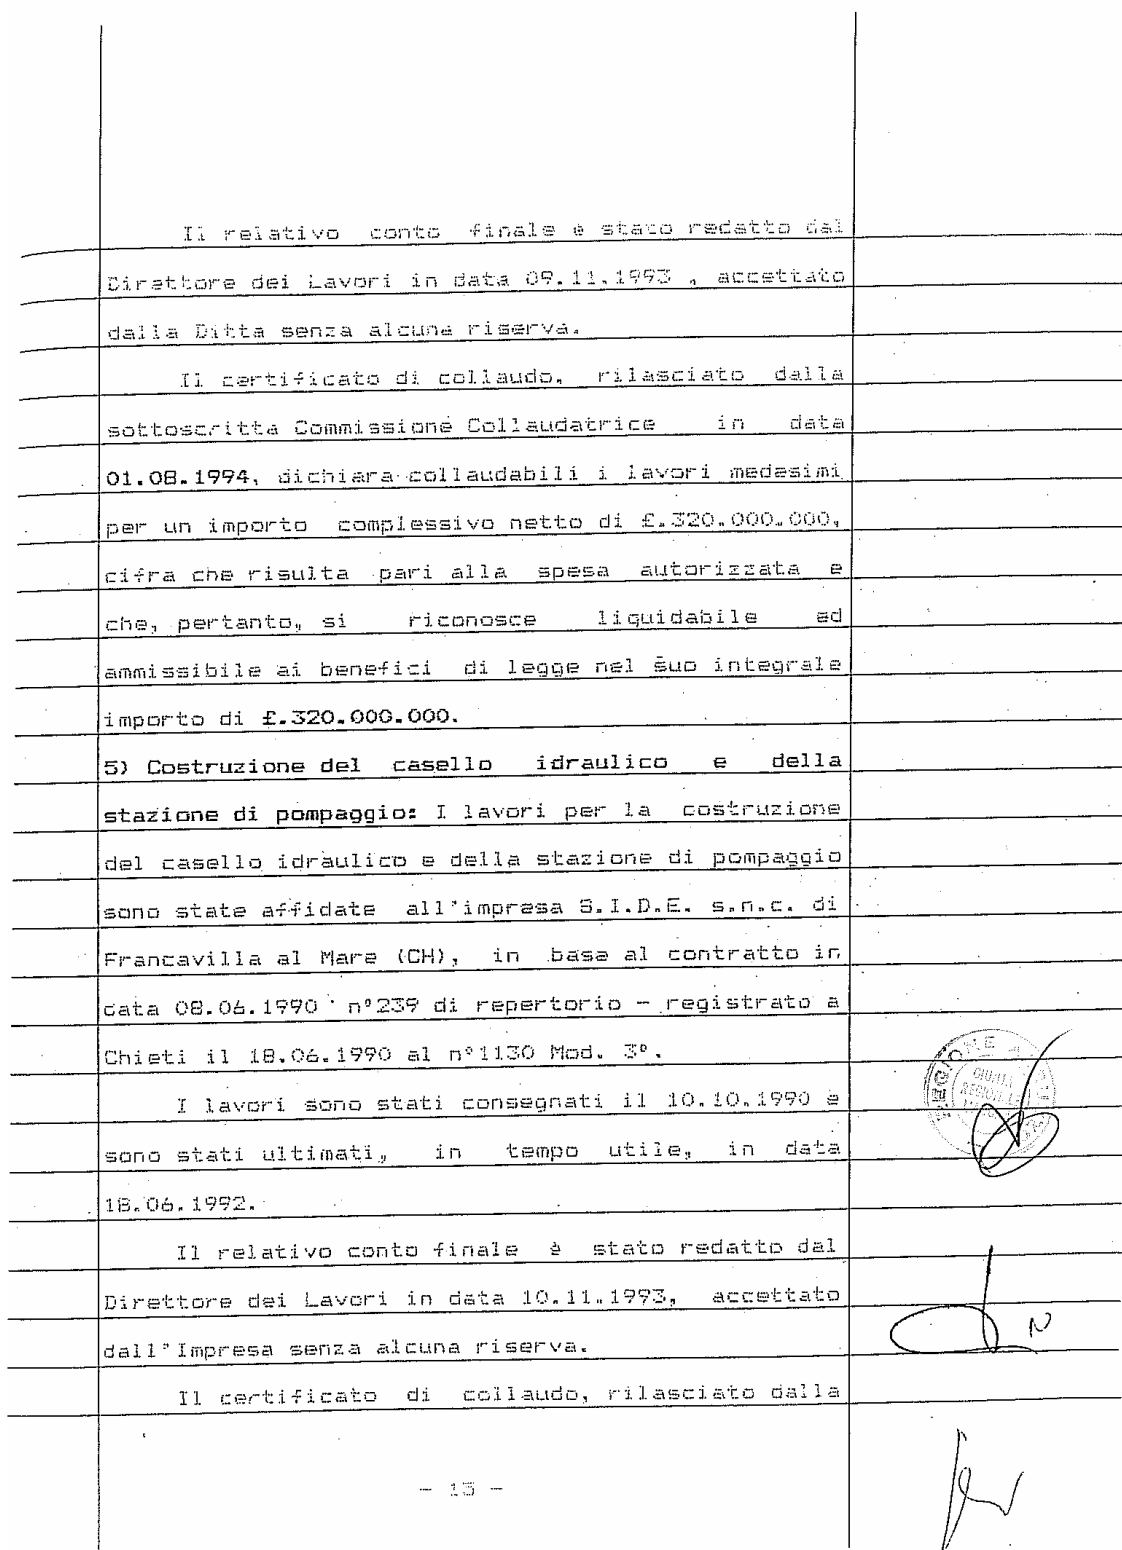 Il relativo conto finale è stato redatto dal
Direttore dei Lavori in data 09.11.1993 , accettato
dalla Ditta senza alcuna riserva.
Il certificato di collaudo, rilasciato dalla
sottoscritta Commissione Collaudatrice in data
01.08.1994, dichiara collaudabili i lavori medesimi
per un importo complessivo netto di £.320.000.000,
cifra che risulta pari alla spesa autorizzata e
che, pertanto, si riconosce liquidabile ed
ammissibile ai benefici di legge nel suo integrale
importo di £.320.000.000.
5) Costruzione del casello idraulico e della
stazione di pompaggio: I lavori per la costruzione
del casello idraulico e della stazione di pompaggio
sono state affidate all'impresa S.I.D.E. s.n.c. di
Francavilla al Mare (CH), in base al contratto in
data 08.06.1990 n°239 di repertorio - registrato a
Chieti il 18.06.1990 al n°1130 Mod. 3°.
REGIONE
GIUNTA
REGIONALE
I lavori sono stati consegnati il 10.10.1990 e
sono stati ultimati, in tempo utile, in data
18.06.1992.
Il relativo conto finale è stato redatto dal
Direttore dei Lavori in data 10.11.1993, accettato
dall'Impresa senza alcuna riserva.
Il certificato di collaudo, rilasciato dalla
- 13 -